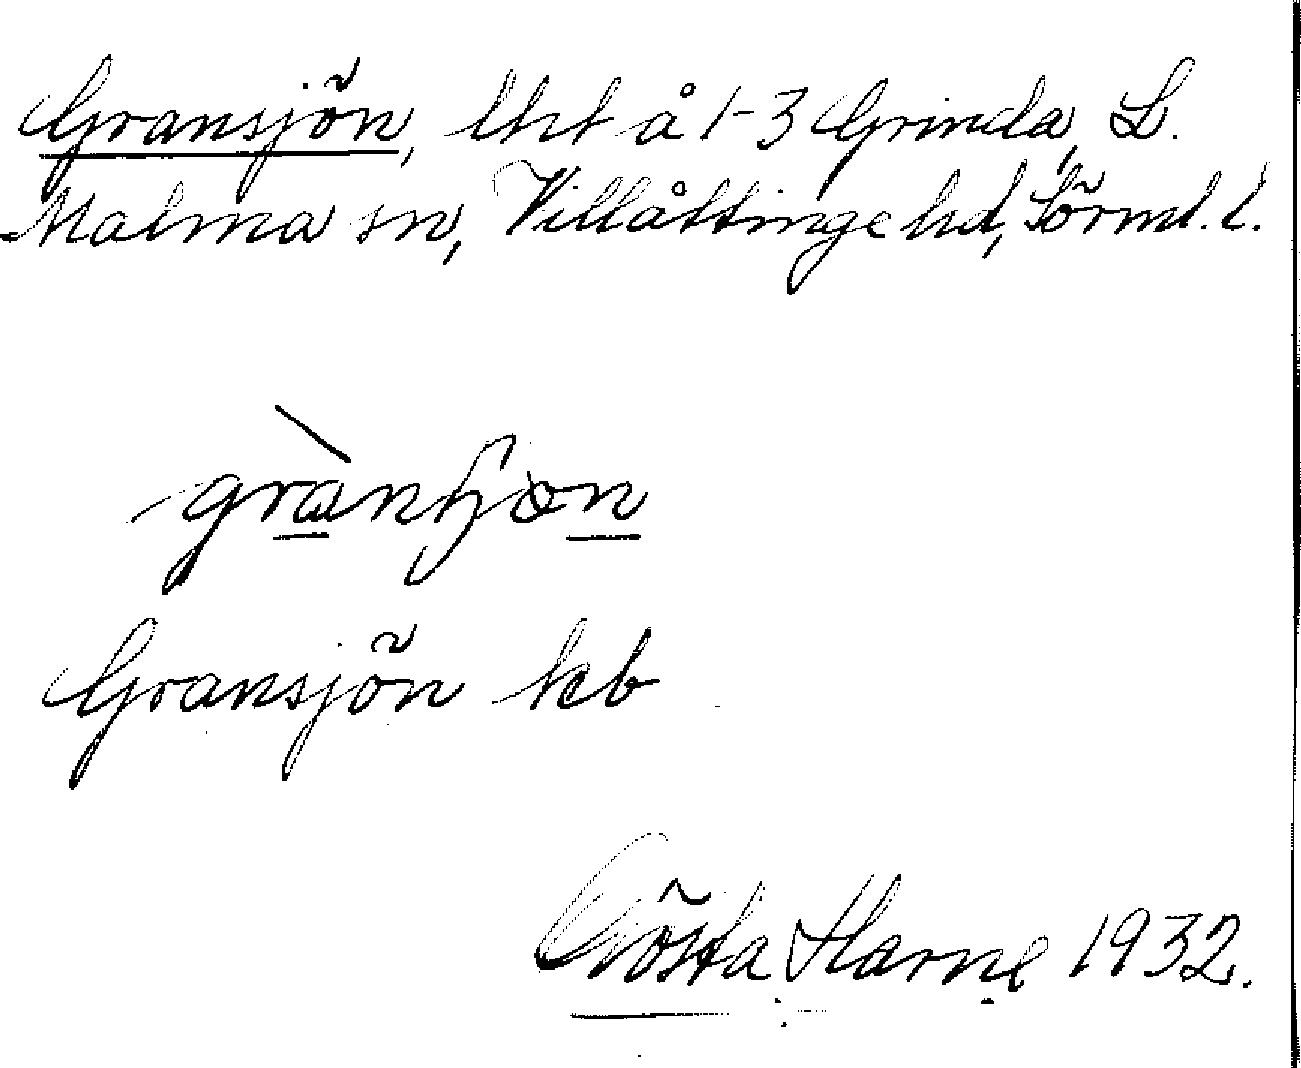 Gransjön, lht å 1-3 Grinda, L.
Malma sn, Villåttinge hd, Sörml. l.
Gransjön kb
Gösta Harne 1932.